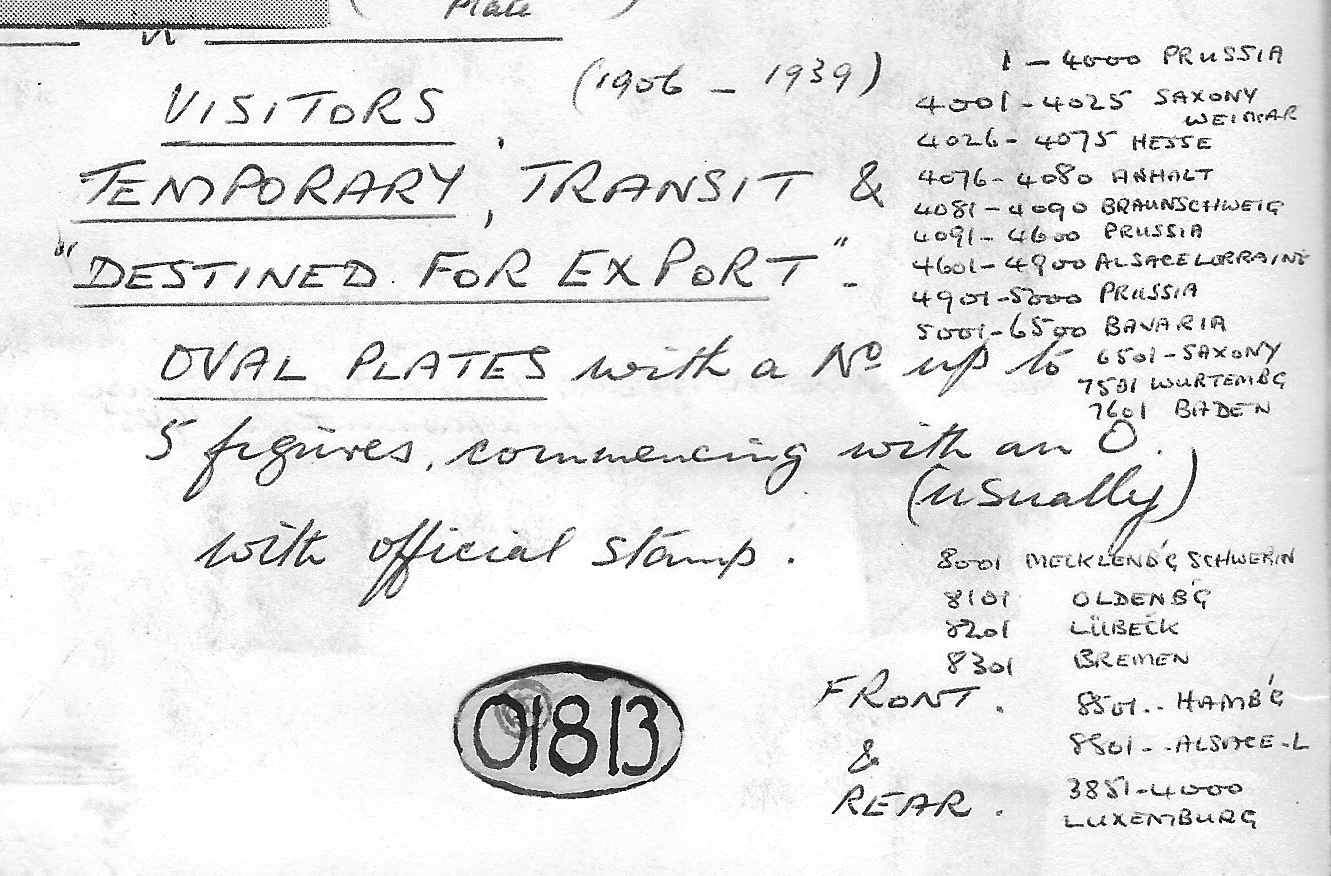 Plate
(1906 – 1939)
VISITORS,
TEMPORARY, TRANSIT &
"DESTINED FOR EXPORT".
OVAL PLATES with a Nº up to
5 figures, commencing with an O.
(usually)
with official stamp.
01813
FRONT.
&
REAR.
1 – 4000 PRUSSIA
4001 - 4025 SAXONY
WEIMAR
4026 - 4075 HESSE
4076 - 4080 ANHALT
4081 - 4090 BRAUNSCHWEIG
4091 - 4600 PRUSSIA
4601 - 4900 ALSACE LORRAINE
4901 - 5000 PRUSSIA
5001 - 6500 BAVARIA
6501 - SAXONY
7501 WURTEMBG
7601 BADEN
8001 MECKLENB'G SCHWERIN
8101 OLDENB'G
8201 LÜBECK
8301 BREMEN
8501.. HAMB'G
8801-.. ALSACE-L
3851-4000
LUXEMBURG